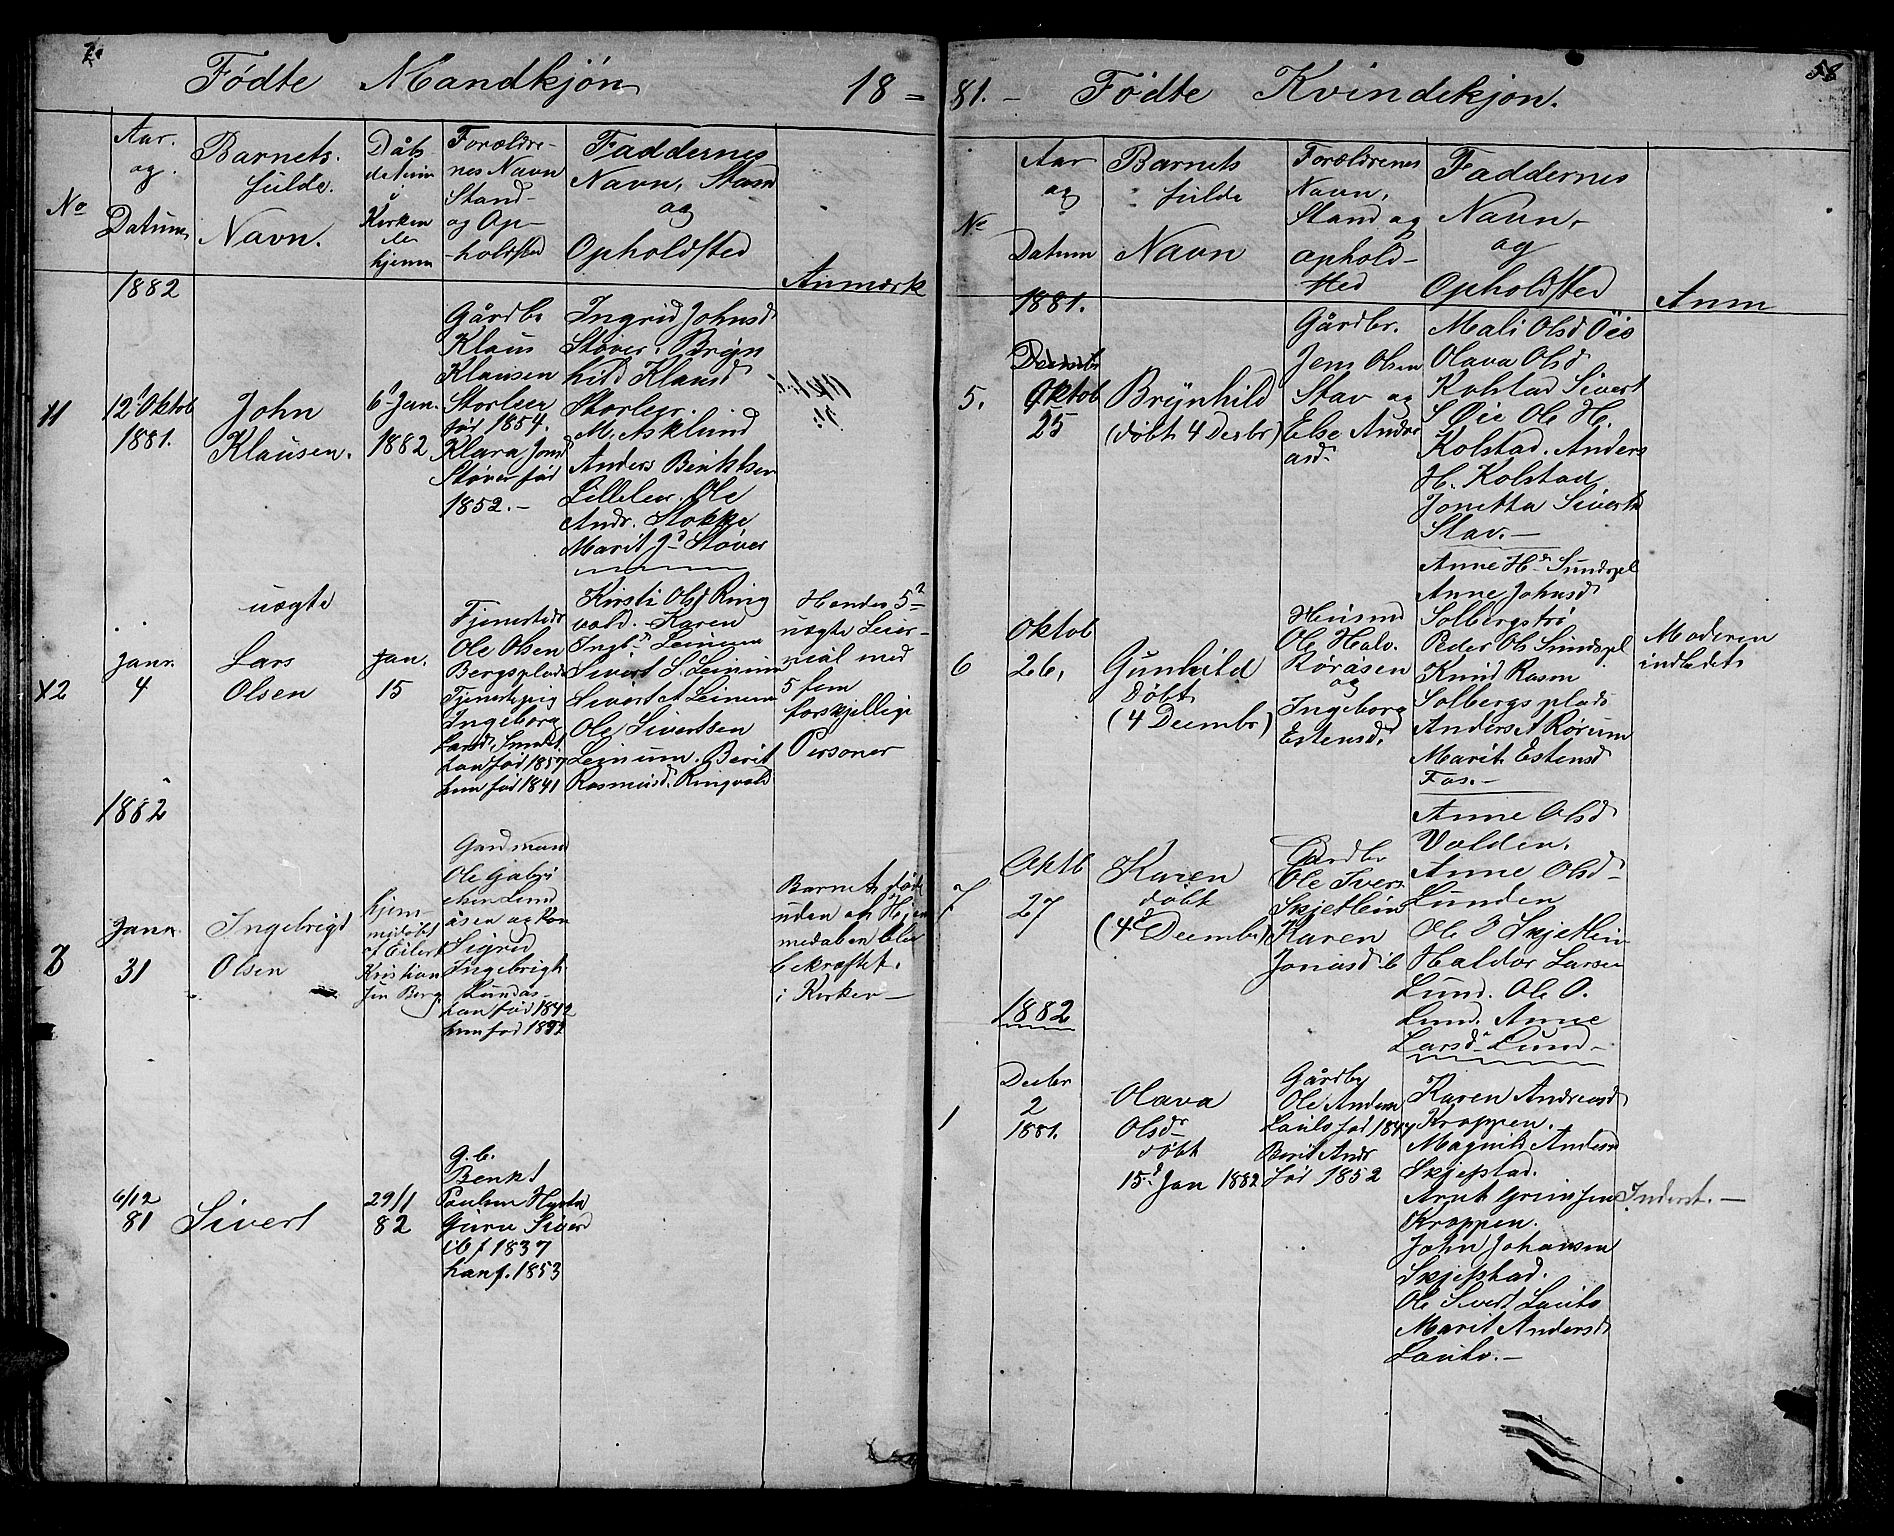 58
Fødte Mandkjøn 18 =
No
Aar.
og.
Datum
Barnets.
fulde.
Navn.
Dåbs
datum
i
Kirken
eller
hjemme
Forældre-
nes Navn
Stand-
og Op-
-holdsted
Faddernes
Navn, Stand
og
Opholdsted
Anmærk
1882
11
12t Oktob
1881.
John
Klausen.
6t Jan.
1882
Gårdbr
Klaus
Klausen
Storleer
fød 1854.
Klara Jonsd
Støver fød
1852.-
Ingrid Johnsd
Støver. Bryn
hild Klausd
Storleer.
M. Asklund
Anders Benktsen
Lilleleer. Ole
Andr. Stokke
Marit Jd Støver
uægte
X2
Janr.
4
Lars
Olsen
Jan.
15
Tjenestedr
Ole Olsen
Bergsplads
Tjenestepig
Ingeborg
Larsd.
han fød 1857
hun fød 1841
Kirsti Olsd Ring
vold. Karen
Ingbd Leinum
Sivert S. Leinum
Sivert A Leinum
Ole Sivertsen
Leinum. Berit
Rasmusd. Ringvold
Hendes 5te
uægte Leier-
mål med
5 fem
forskjellige
Personer
1882
3
Janr.
31
Ingebrigt
Olsen
hjem-
medøbt
af Eilert
Kristian
sen Berg
Gardmand
Ole Gabri
elsen Lund
åsen og Kon
Sigrid
Ingebrigt
Lundås-
han fød 1842
hun fød 1842
Barnets fødte
uden at Hjem
medåben blev
bekræftet.
i Kirken-
6/12
81
Sivert
29/1
82
g.b.
Benkt
Paulsen
Guru Siverd
ib f 1837
han f. 1853
81. - Fødte Kvindekjøn.
No
Aar
og
Datum
Barnets
fulde
Navn
Forældrenes
Navn,
Stand og
ophold-
sted
Faddernes
Navn,
og
Opholdsted
Anm
1881.
5.
Decmbr
Oktob
25
Brynhild
(døbt 4 Decbr)
Gårdbr.
Jens Olsen
Stav og
Else Andre
asd.
Mali Olsd Øie
Olava Olsd
Kolstad Sivert
S Øie Ole H.
Kolstad. Anders
H. Kolstad
Jonetta Sivertsd
Stav.-
6
Oktob
26,
Gunhild
døbt
(4 Decmbr)
Husmd
Ole Halv.
Röråsen
og
Ingeborg
Estensd.
Anne Hd Sundspl
Anne Johnsd
Solbergstrø
Peder Ols Sundspl
Knud Rasm
Solbergsplads
Anders A Rørum
Marit Estensd
Fos.-
Moderen
indledet
7
Oktb
27
Karen
døbt
(4de Decmbr)
Gardbr
Ole Ivers
Skjetlein
Karen
Jonasd ib
Anne Olsd
Volden.
Anne Olsd-
Lunden
Ole I Skjetlein
Haldor Larsen
Lund. Ole O.
Lund. Anne
Larsd Lund-
1882
1
Decbr
2
1881.
Olava
Olsdr
døbt
15d Jan 1882
Gårdbr
Ole Anders
Laulo fød 1844
Berit Andr
fød 1852
Karen Andreasd
Kroppen.
Magnild Andersd
Skjefstad.
Arnt Grim sen
Kroppen.
John Johansen
Skjefstad.
Ole Sivert Laulo
Marit Andersd
Laulo.-
Inderst.-